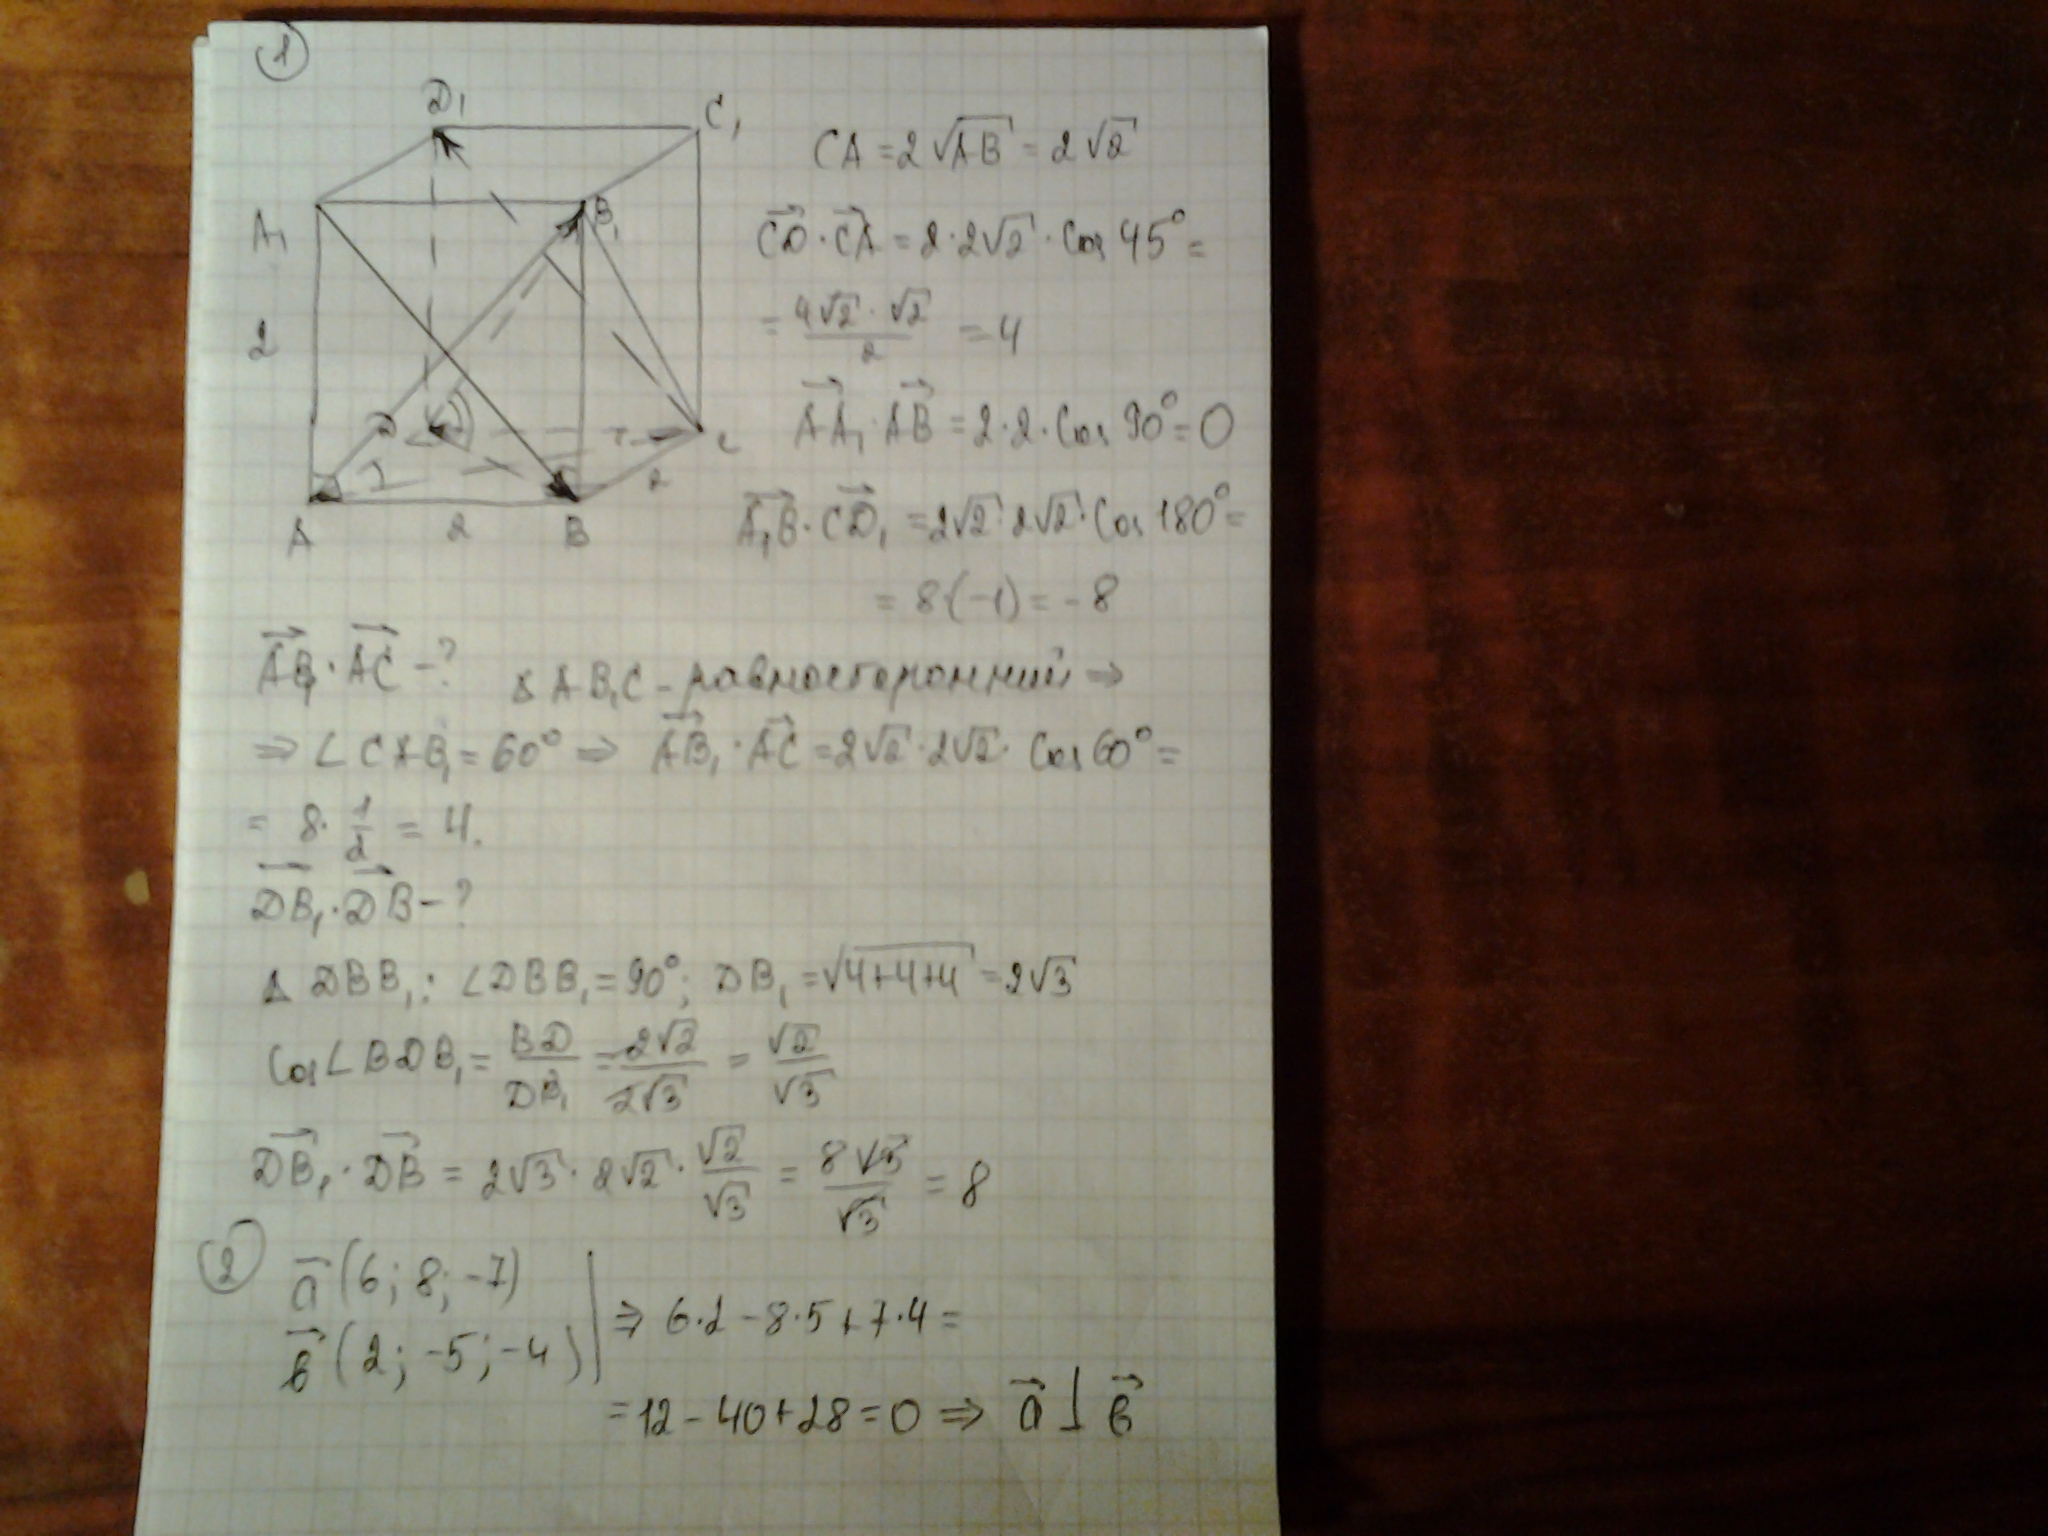 1
D₁
C₁
A₁
B₁
2
D
C
2
A
2
B
CA = 2√AB = 2√2
C͞D→ · CA→ = 2·2√2 · Cos 45° =
= (4√2 · √2)/2 = 4
AA₁→ · AB→ = 2·2·Cos 90° = 0
A₁B→ · CD₁→ = 2√2 · 2√2 · Cos 180° =
= 8·(-1) = -8
AB₁→ · AC→ - ? Δ AB₁C - равносторонний ⇒
⇒ ∠CAB₁ = 60° ⇒ AB₁→ · AC→ = 2√2 · 2√2 · Cos 60° =
= 8 · 1/2 = 4.
DB₁→ · DB→ - ?
Δ DBB₁: ∠DBB₁ = 90°; DB₁ = √4+4+4 = 2√3
Cos∠BDB₁ = BD/DB₁ = 2√2/2√3 = √2/√3
DB₁→ · DB→ = 2√3 · 2√2 · √2/√3 = 8√3/√3 = 8
2
a→ (6; 8; -7)
в→ (2; -5; -4) ⇒ 6·2 - 8·5 + 7·4 =
= 12 - 40 + 28 = 0 ⇒ a→ ⊥ в→